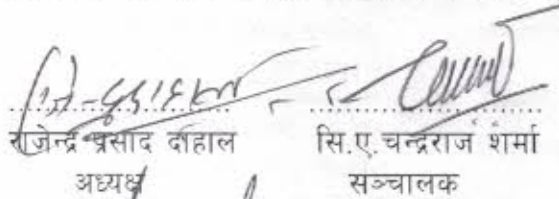 राजेन्द्र प्रसाद दाहाल
अध्यक्ष
सि.ए. चन्द्रराज शर्मा
सञ्चालक